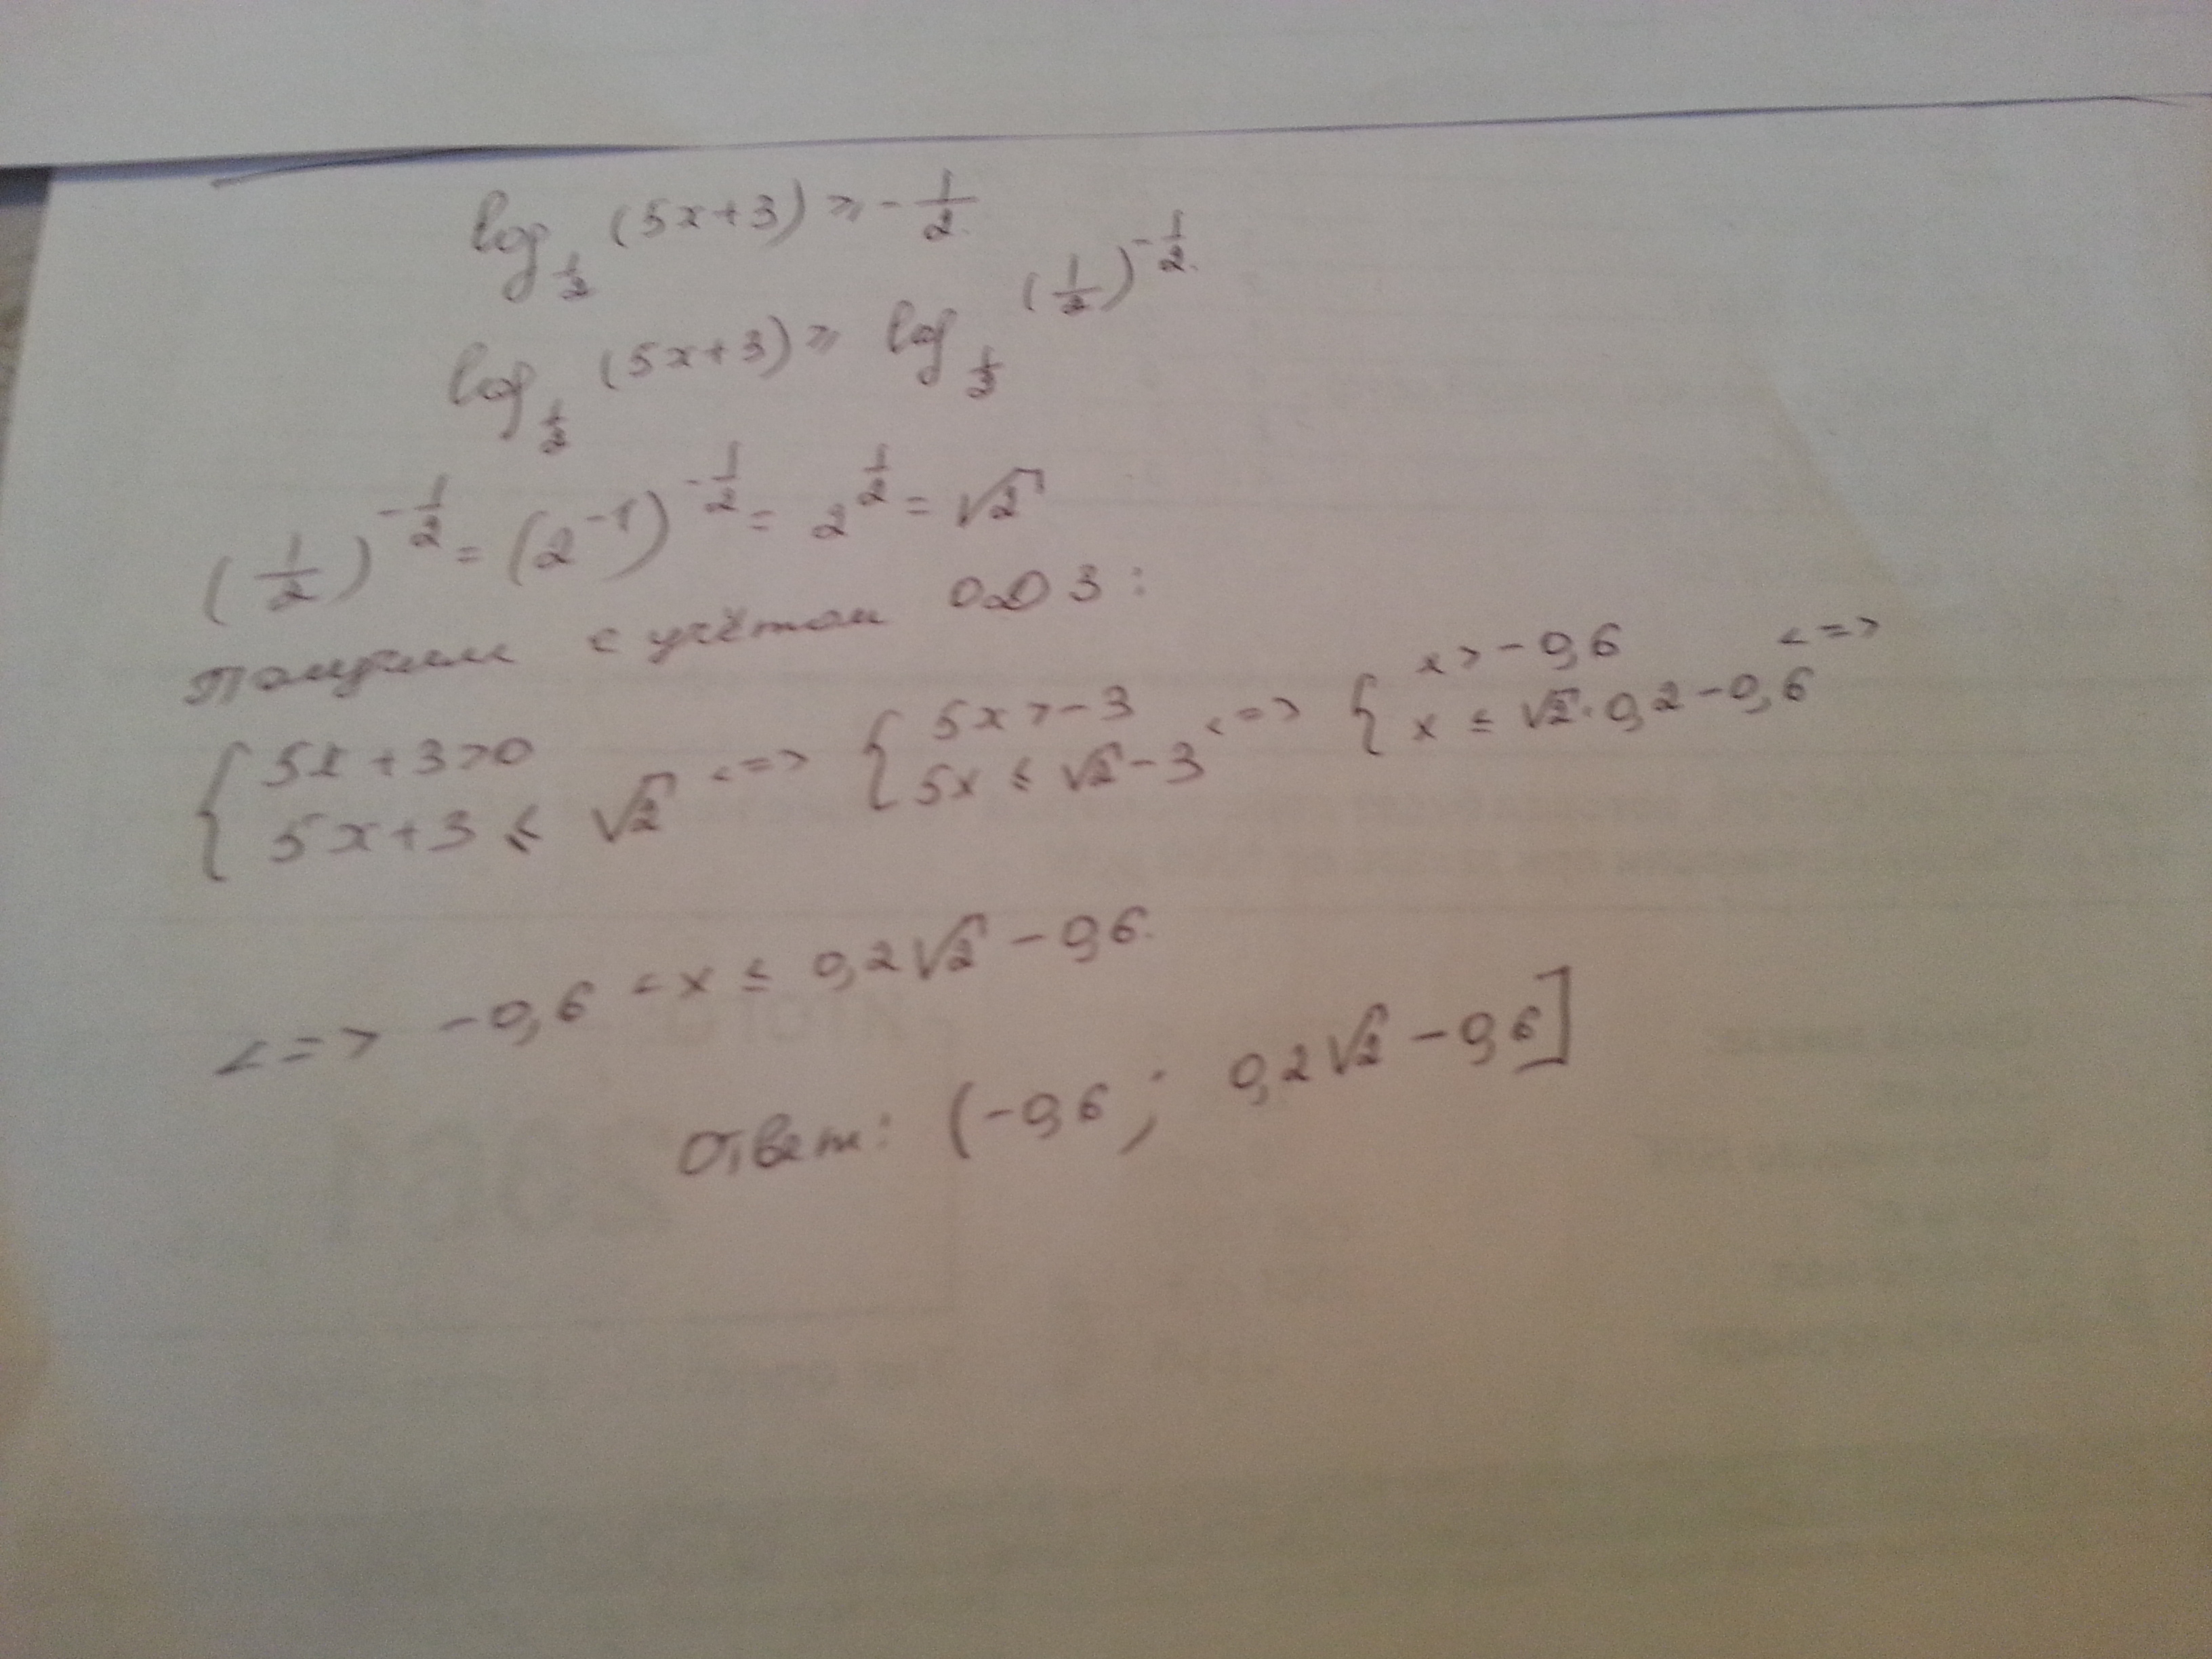 log_{1/2} (5x+3) ≥ -1/2
log_{1/2} (5x+3) ≥ log_{1/2} (1/2)^{-1/2}
(1/2)^{-1/2} = (2^{-1})^{-1/2} = 2^{1/2} = √2
Получим с учётом ОДЗ:
{ 5x+3>0 <=> { 5x>-3 <=> { x>-0,6 <=>
{ 5x+3 ≤ √2 { 5x ≤ √2-3 { x ≤ √2·0,2-0,6
<=> -0,6 < x ≤ 0,2√2 - 0,6.
Ответ: (-0,6; 0,2√2 - 0,6]